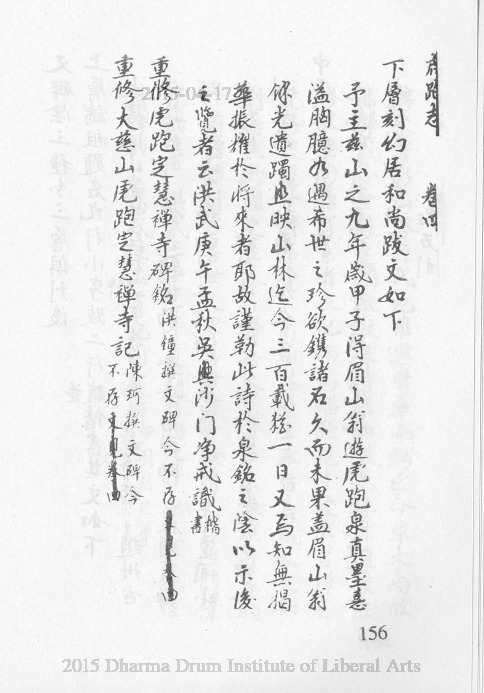 虎跑志 卷四
下層刻約居和尚跋文如下
予主茲山之九年歲甲子得眉山翁遊虎跑泉真墨喜
溢胸臆如遇希世之珍欲鐫諸石久而未果蓋眉山翁
餘光遺躅照映山林迄今三百載猶一日又焉知無揭
華振耀於將來者耶故謹勒此詩於泉銘之陰以示後
之覽者云洪武庚午孟秋吳興沙门淨戒識 書
重修虎跑定慧禪寺碑銘 洪鐘撰文碑今不存
重修大慈山虎跑定慧禪寺記 陳珂撰文碑今
不存
156
2015 Dharma Drum Institute of Liberal Arts